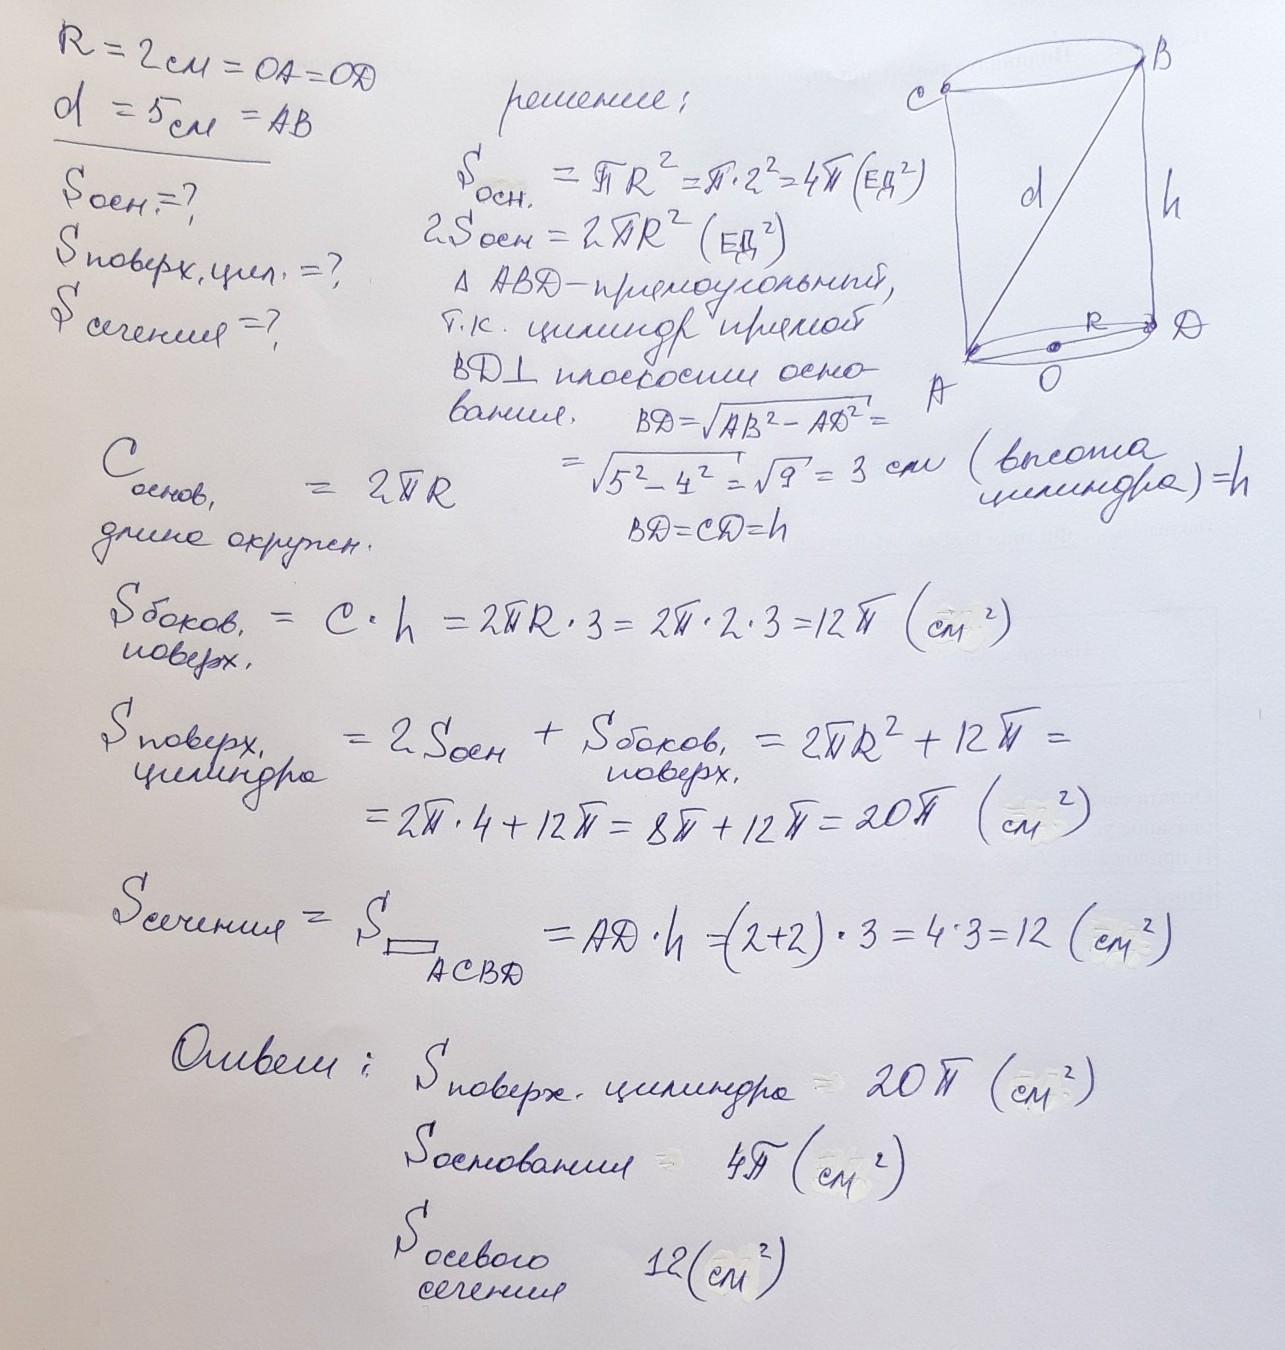 R = 2 см = OA = OD
d = 5 см = AB
Sосн. = ?
Sповерх. цил. = ?
Sсечения = ?
решение:
Sосн. = πR² = π·2² = 4π (ЕД²)
2Sосн = 2πR² (ЕД²)
Δ ABD – прямоугольный,
т.к. цилиндр прямой
BD⊥ плоскости осно-
вания. BD = √(AB² – AD²) =
= √(5² – 4²) = √9 = 3 см (высота
цилиндра) = h
BD = CD = h
C
B
d
h
R
A
O
D
Cоснов. = 2πR
длина окружн.
Sбоков. поверх. = C · h = 2πR · 3 = 2π · 2 · 3 = 12π (см²)
Sповерх. цилиндра = 2Sосн + Sбоков. поверх. = 2πR² + 12π =
= 2π · 4 + 12π = 8π + 12π = 20π (см²)
Sсечения = S▭ACBD = AD · h = (2+2) · 3 = 4·3 = 12 (см²)
Ответ: Sповерх. цилиндра = 20π (см²)
Sоснования = 4π (см²)
Sосевого сечения 12 (см²)